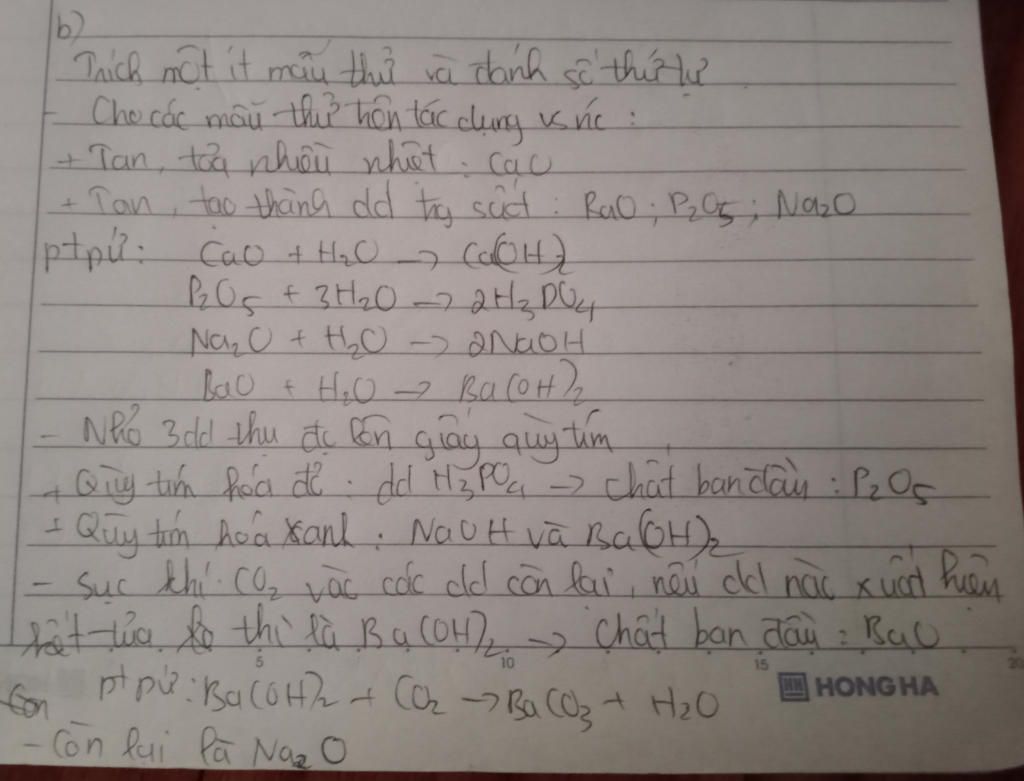 b)
Trích một ít mẫu thử và đánh số thứ tự
- Cho các mẫu thử trên tác dụng vs nc :
+ Tan, toả nhiều nhiệt : CaO
+ Tan, tạo thành dd trg suốt : BaO ; P2O5 ; Na2O
ptpứ : CaO + H2O → Ca(OH)2
P2O5 + 3H2O → 2H3PO4
Na2O + H2O → 2NaOH
BaO + H2O → Ba(OH)2
- Nhỏ 3dd thu đc lên giấy quỳ tím
+ Quỳ tím hóa đỏ : dd H3PO4 → chất ban đầu : P2O5
+ Quỳ tím hoá xanh : NaOH và Ba(OH)2
- Sục khí CO2 vào các dd còn lại, nếu dd nào xuất hiện
kết tủa thì là Ba(OH)2 → Chất ban đầu : BaO
5 10 15 20
ptpứ : Ba(OH)2 + CO2 → BaCO3 + H2O
HH HONG HA
Còn
- Còn lại là Na2O